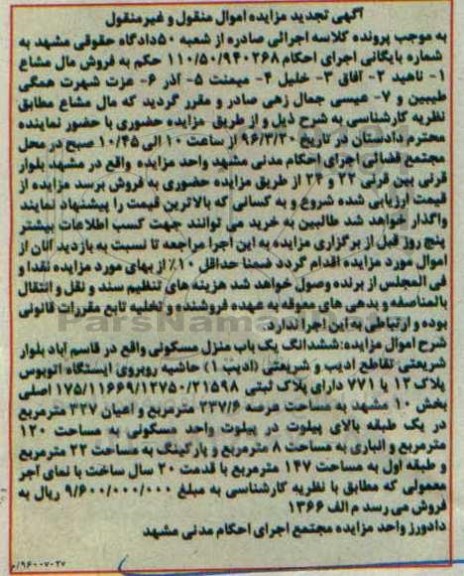 آگهی تجدید مزایده اموال منقول و غیرمنقول
به موجب پرونده کلاسه اجرائی صادره از شعبه ۵۰دادگاه حقوقی مشهد به
شماره بایگانی اجرای احکام ۱۱۰/۵۰/۹۴۰۲۶۸ حکم به فروش مال مشاع
۱- ناهید ۲- آفاق ۳- خلیل ۴- میمنت ۵- آذر ۶- عزت شهرت همگی
طبیبین و ۷- عیسی جمال زهی صادر و مقرر گردید که مال مشاع مطابق
نظریه کارشناسی به شرح ذیل و از طریق مزایده حضوری با حضور نماینده
محترم دادستان در تاریخ ۹۶/۳/۳۰ از ساعت ۱۰ الی ۱۰/۴۵ صبح در محل
مجتمع قضائی اجرای احکام مدنی مشهد واحد مزایده واقع در مشهد بلوار
قرنی بین قرنی ۲۲ و ۲۴ از طریق مزایده حضوری به فروش برسد مزایده از
قیمت ارزیابی شده شروع و به کسانی که بالاترین قیمت را پیشنهاد نمایند
واگذار خواهد شد طالبین به خرید می توانند جهت کسب اطلاعات بیشتر
پنج روز قبل از برگزاری مزایده به این اجرا مراجعه تا نسبت به بازدید آنان از
اموال مورد مزایده اقدام گردد ضمنا حداقل ۱۰٪ از بهای مورد مزایده نقدا و
فی المجلس از برنده وصول خواهد شد هزینه های تنظیم سند و نقل و انتقال
بالمناصفه و بدهی های معوقه به عهده فروشنده و تخلیه تابع مقررات قانونی
بوده و ارتباطی به این اجرا ندارد.
شرح اموال مزایده:ششدانگ یک باب منزل مسکونی واقع در قاسم آباد بلوار
شریعتی تقاطع ادیب و شریعتی (ادیب ۱) حاشیه روبروی ایستگاه اتوبوس
پلاک ۱۲ یا ۷۷۱ دارای پلاک ثبتی ۱۷۵/۱۱۶۶۹/۱۲۷۵۰/۲۱۵۹۸ اصلی
بخش ۱۰ مشهد به مساحت عرصه ۲۳۷/۶ مترمربع و اعیان ۳۲۷ مترمربع
در یک طبقه بالای پیلوت در پیلوت واحد مسکونی به مساحت ۱۲۰
مترمربع و انباری به مساحت ۸ مترمربع و پارکینگ به مساحت ۲۲ مترمربع
و طبقه اول به مساحت ۱۴۷ مترمربع با قدمت ۲۰ سال ساخت با نمای آجر
معمولی که مطابق با نظریه کارشناسی به مبلغ ۹/۶۰۰/۰۰۰/۰۰۰ ریال به
فروش می رسد م الف ۱۳۶۶
دادورز واحد مزایده مجتمع اجرای احکام مدنی مشهد